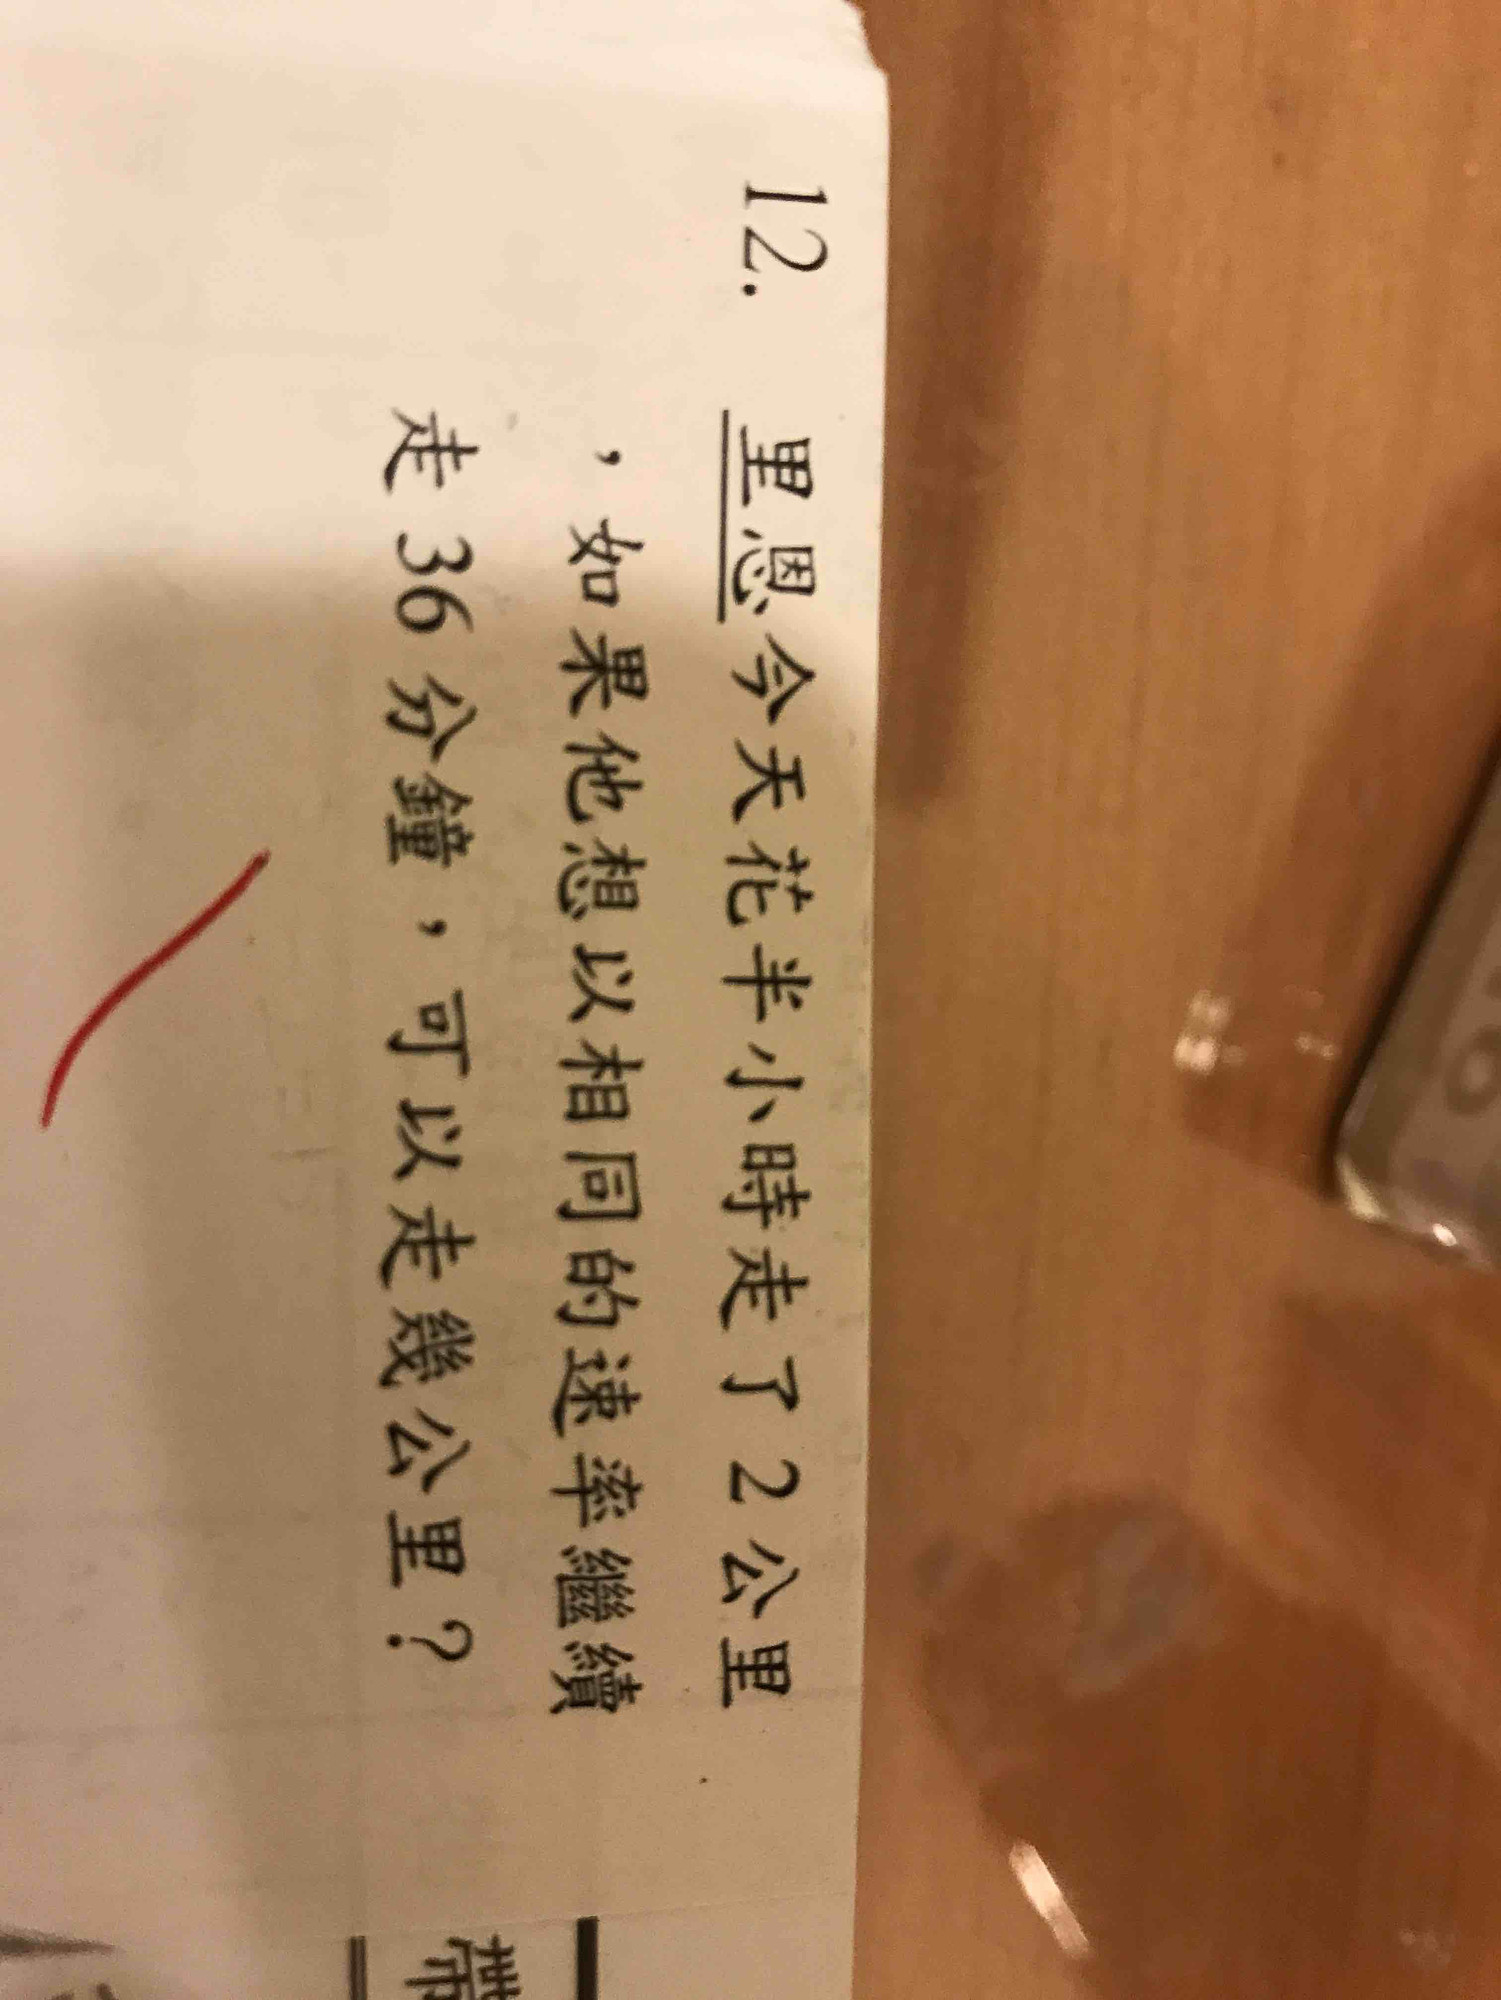 12. 里恩今天花半小時走了2公里
，如果他想以相同的速率繼續
走36分鐘，可以走幾公里？
帶